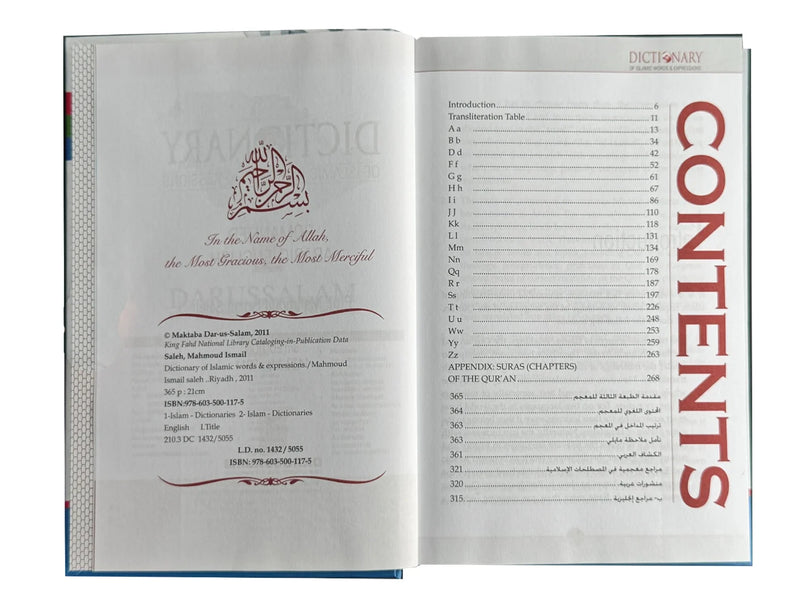 بسم الله الرحمن الرحيم
In the Name of Allah,
the Most Gracious, the Most Merciful
© Maktaba Dar-us-Salam, 2011
King Fahd National Library Cataloging-in-Publication Data
Saleh, Mahmoud Ismail
Dictionary of Islamic words & expressions./ Mahmoud
Ismail saleh ..Riyadh , 2011
365 p : 21cm
ISBN:978-603-500-117-5
1-Islam - Dictionaries 2- Islam - Dictionaries
English I.Title
210.3 DC 1432/ 5055
L.D. no. 1432/ 5055
ISBN: 978-603-500-117-5
DICTIONARY
OF ISLAMIC WORDS & EXPRESSIONS
CONTENTS
Introduction 6
Transliteration Table 11
A a 13
B b 34
D d 42
F f 52
G g 61
H h 67
I i 86
J J 110
Kk 118
L l 131
Mm 134
Nn 169
Qq 178
R r 187
Ss 197
T t 226
U u 248
Ww 253
Yy 259
Zz 263
APPENDIX: SURAS (CHAPTERS)
OF THE QUR'AN 268
مقدمة الطبعة الثالثة للمعجم 365
المحتوى اللغوي للمعجم 364
ترتيب المداخل في المعجم 363
نأمل ملاحظة مايلي 363
الكشاف العربي 361
مراجع معجمية في المصطلحات الإسلامية 321
منشورات عربية. 320
ب- مراجع إنجليزية 315.